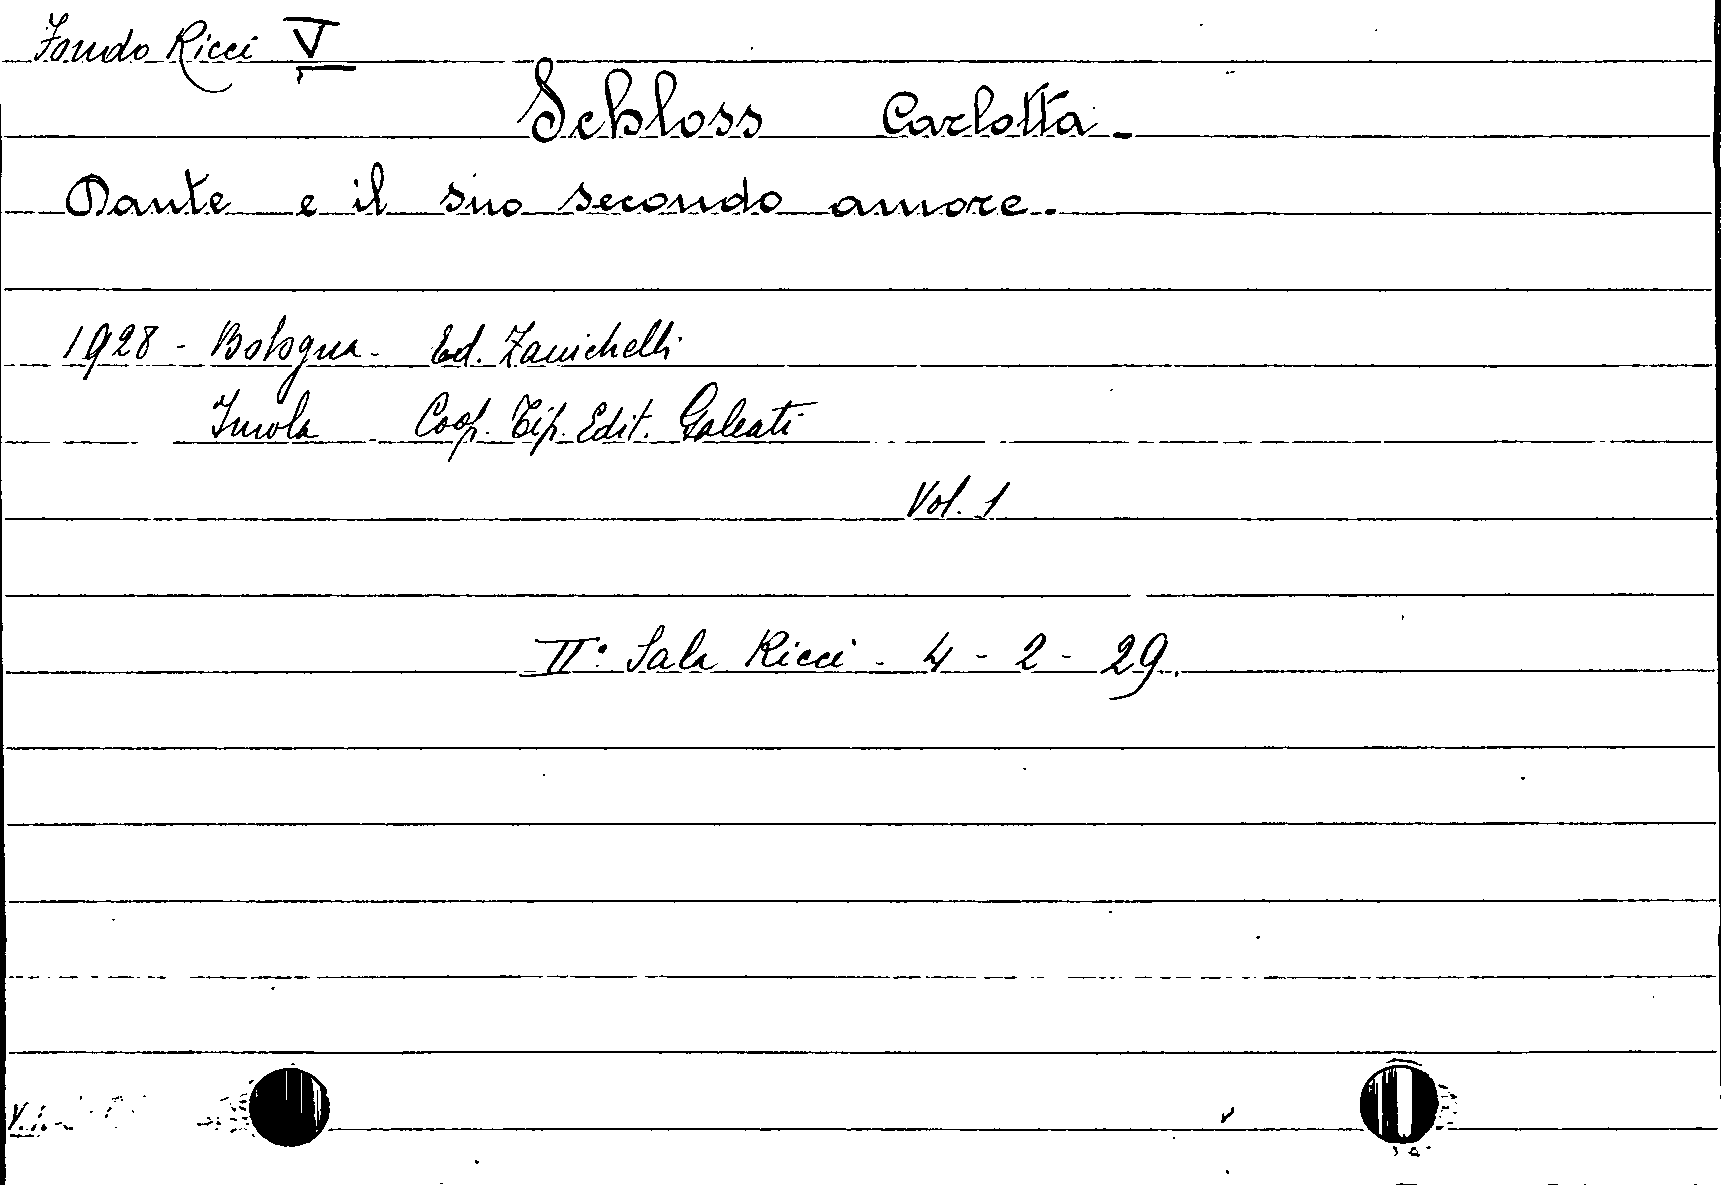 Fondo Ricci V
Schloss Carlotta -
Dante e il suo secondo amore.
1928 - Bologna - Ed. Zanichelli
Imola Coop. Tip. Edit. Galeati
Vol. 1
IIª Sala Ricci - 4 - 2 - 29.